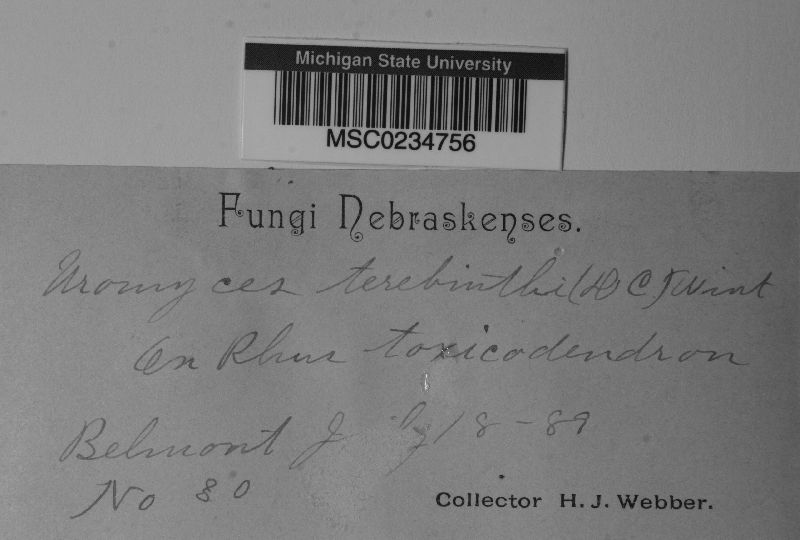 Michigan State University
MSC0234756
Fungi Nebraskenses.
Uromyces terebinthi (DC) Wint
On Rhus toxicodendron
Belmont 18-89
No 80
Collector H. J. Webber.